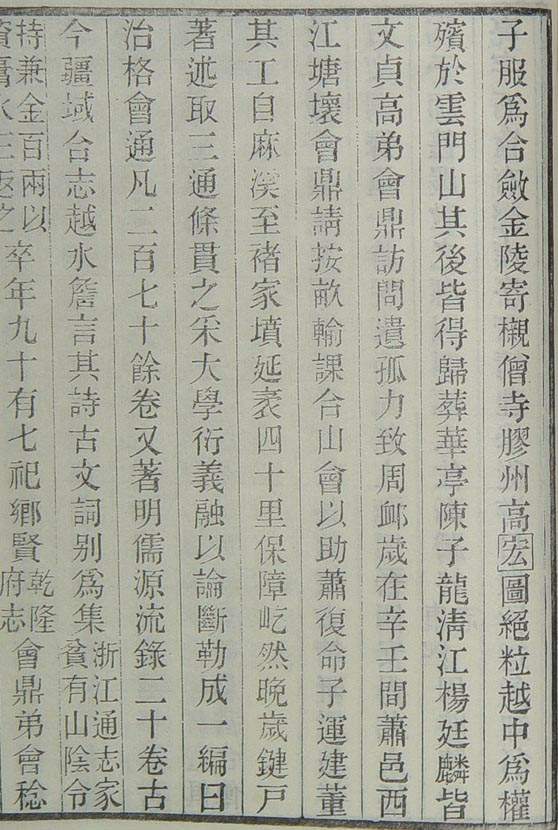 子服爲合斂金陵寄櫬僧寺膠州高宏圖絕粒越中爲權
殯於雲門山其後皆得歸葬華亭陳子龍淸江楊廷麟皆
文貞高弟會鼎訪問遺孤力致周卹歲在辛壬間蕭邑西
江塘壞會鼎請按畝輸課台山會以助蕭復命子運建董
其工自麻溪至褚家墳延袤四十里保障屹然晚歲鍵戸
著述取三通條貫之采大學衍義融以論斷勒成一編曰
治格會通凡二百七十餘卷又著明儒源流錄二十卷古
今疆域合志越水詹言其詩古文詞别爲集浙江通志家貧有山陰令
持兼金百兩以資膏火三返之卒年九十有七祀鄉賢乾隆府志會鼎弟會稔